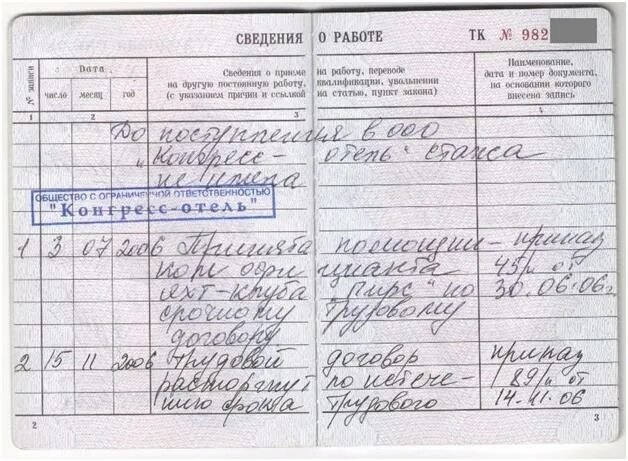 СВЕДЕНИЯ О РАБОТЕ ТК № 982
№ записи
Дата
число месяц год
Сведения о приеме на работу, переводе
на другую постоянную работу, квалификации, увольнении
(с указанием причин и ссылкой на статью, пункт закона)
Наименование,
дата и номер документа,
на основании которого
внесена запись
1 2 3 4
До поступления в ООО
"Конгресс- отель" стажа
не имела
ОБЩЕСТВО С ОГРАНИЧЕННОЙ ОТВЕТСТВЕННОСТЬЮ
"Конгресс-отель"
1 3 07 2006 Принята помощни- приказ
ком офи цианта 45/л от
яхт-клуба "Пирс" по 30.06.06г
срочному трудовому
договору
2 15 11 2006 Трудовой договор приказ
расторгнут по истече- 89/л от
нию срока трудового 14.11.06
2 3